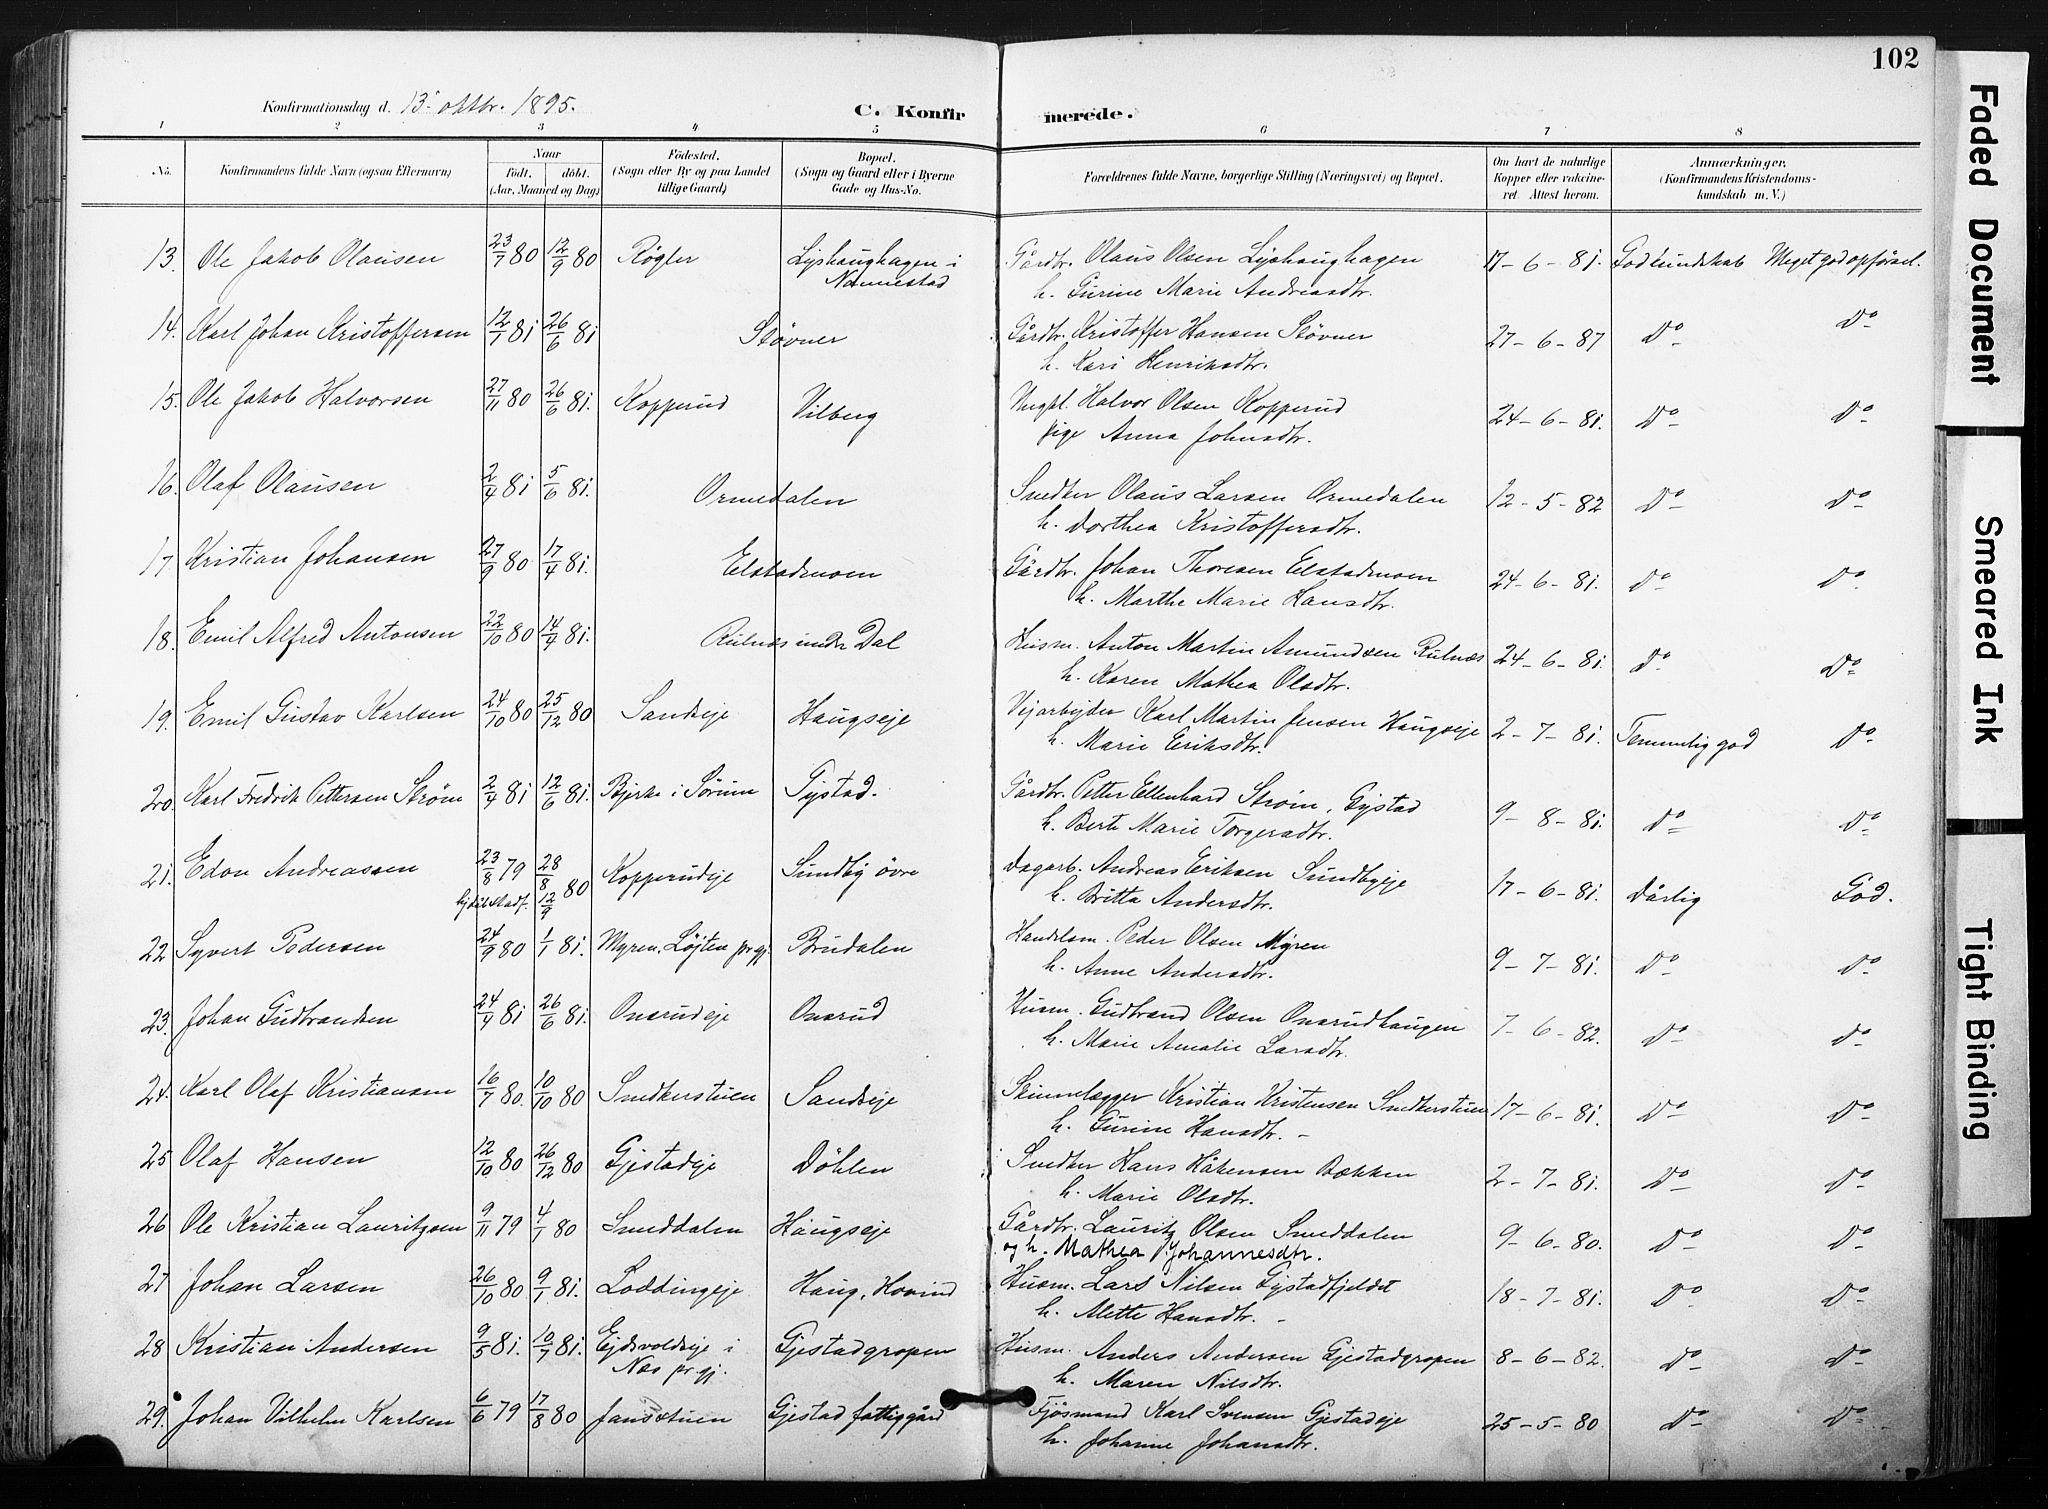 102
Konfirmationsdag d. 13' oktbr. 1895.
C. Konfirmerede.
1 2 3 4 5 6 7 8
No. Konfirmandens fulde Navn (ogsaa Efternavn) Naar født. døbt. (Aar, Maaned og Dag) Fødested. (Sogn eller By og paa Landet tillige Gaard) Bopæl. (Sogn og Gaard eller i Byerne Gade og Hus-No. Forældrenes fulde Navne, borgerlige Stilling (Næringsvei) og Bopæl. Om havt de naturlige Kopper eller vakcineret. Attest herom. Anmærkninger. (Konfirmandens Kristendomskundskab m. V.)
13. Ole Jakob Olausen 23/7 80 12/9 80 Røgler Lyshaughagen i Nannestad Gårdbr. Olaus Olsen Lyshaughagen 17-6-81. God kundskab Meget god opførsel.
h. Gurine Marie Andreasdtr.
14. Karl Johan Kristoffersen 12/1 81 26/6 81 Støvner Gårdbr. Kristoffer Hansen Støvner 27-6-87 Do Do
h. Kari Henriksdtr.
15. Ole Jakob Halvorsen 27/11 80 26/6 81. Kopperud Vilberg Ungkl. Halvor Olsen Kopperud 24-6-81. Do Do
pige Anna Johnsdtr.
16. Olaf Olausen 2/4 81 5/6 81. Ormedalen Snedker Olaus Larsen Ormedalen 12-5-82 Do Do
h. Dorthea Kristoffersdtr.
17. Kristian Johansen 27/9 80 17/4 81. Elstadmoen Gårdbr. Johan Thoresen Elstadmoen 24-6-81. Do Do
h. Marthe Marie Hansdtr.
18. Emil Alfred Antonsen 22/10 80 14/4 81. Rulnæs under Dal Husm. Anton Martin Amundsen Rulnæs 24-6-81. Do Do
h. Karen Mathea Olsdtr.
19. Emil Gustav Karlsen 24/10 80 25/12 80 Sandseje Haugseje Vejarbejder Karl Martin Jensen Haugseje 2-7-81. Temmelig god Do
h. Marie Eriksdtr.
20. Karl Fredrik Pettersen Strøm 2/4 81 12/6 81. Bjerke i Sørum Gystad. Gårdbr. Petter Ellenhard Strøm, Gystad 9-8-81. Do Do
h. Berte Marie Torgersdtr.
21. Edon Andreassen 23/8 79 28/8 12/9 80 Kopperudeje Sundby øvre Dagarb. Andreas Eriksen Sundbyeje 17-6-81. Dårlig God.
hjdøbt stadf.
h. Britta Andersdtr.
22 Syvert Pedersen 24/9 80 1/1 81. Myren, Løjten pr.gj. Brudalen Handelsm. Peder Olsen Myren 9-7-81. Do Do
h. Anne Andersdtr.
23. Johan Gudbrandsen 24/4 81 26/6 81. Onsrudeje Onsrud Husm. Gudbrand Olsen Onsrudhaugen 7-6-82. Do Do
h. Marie Amalie Larsdtr.
24. Karl Olaf Kristiansen 16/7 80. 10/10 80 Snedkerstuen Sandseje Skindlegger Kristian Kristensen Snedkerstuen 17-6-81. Do Do
h. Gurine Hansdtr. -
25 Olaf Hansen 12/10 80 26/12 80 Gjestadeje Døhlen Snedker Hans Håkensen Bækken 2-7-81. Do Do
h. Marie Olsdtr.
26 Ole Kristian Lauritzsen 9/11 79 4/1 80 Smeddalen Haugseje Gårdbr. Lauritz Olsen Smeddalen 9-6-80. Do Do
og h. Mathea Johannesdtr.
27 Johan Larsen 26/10 80 9/1 81. Loddingeje Haug, Hovind Husm. Lars Nilsen Gystadfjeldet 18-7-81. Do Do
h. Alette Hansdtr. -
28 Kristian Andersen 9/5 81. 10/7 81. Ejdsvoldseje i Næs pr.gj. Gjestadgropen Husm. Anders Andersen Gjestadgropen 8-6-82. Do Do
h. Maren Nilsdtr.
29. Johan Vilhelm Karlsen 6/6 79 17/8 80 Jansstuen Gjestad fattiggård Fjøsmand Karl Svensen Gjestadeje 25-5-80 Do Do
h. Johanne Johansdtr.
Faded Document
Smeared Ink
Tight Binding